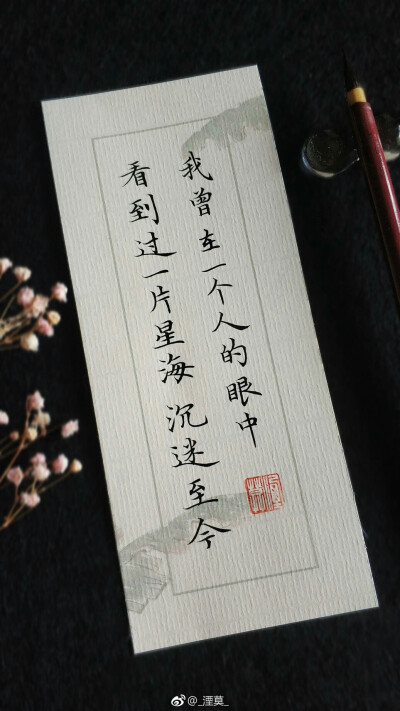 我曾在一个人的眼中
看到过一片星海 沉迷至今
@_湮莫_